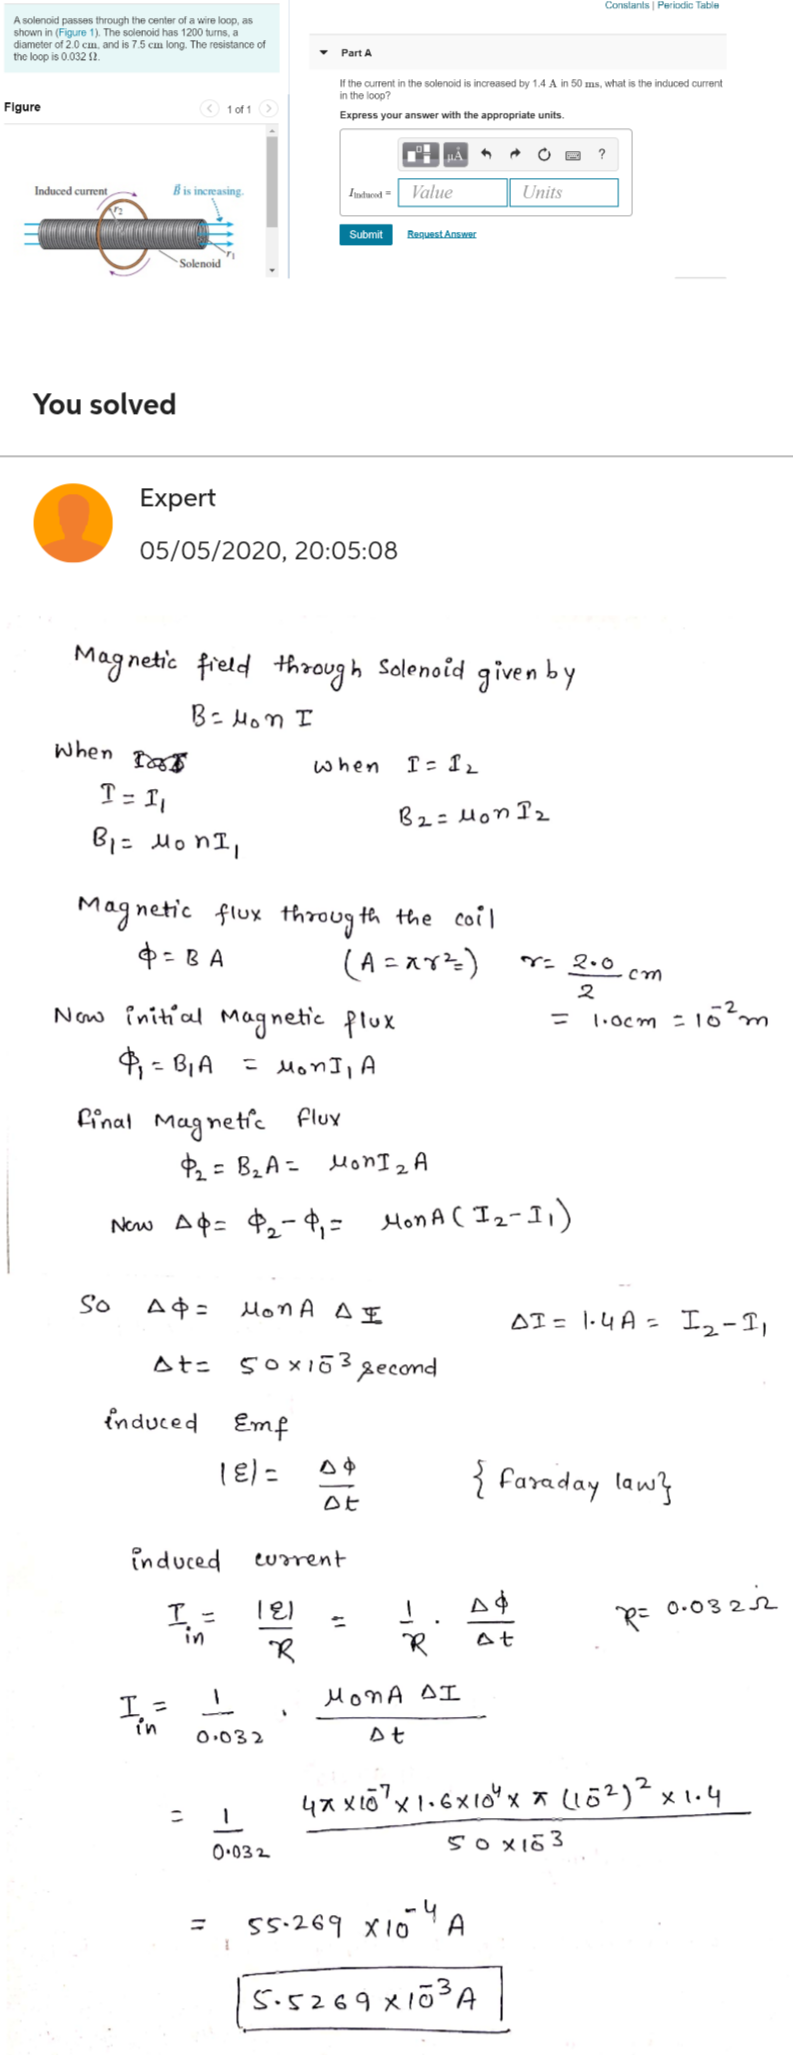 Constants | Periodic Table
A solenoid passes through the center of a wire loop, as
shown in (Figure 1). The solenoid has 1200 turns, a
diameter of 2.0 cm, and is 7.5 cm long. The resistance of
the loop is 0.032 Ω.
Part A
If the current in the solenoid is increased by 1.4 A in 50 ms, what is the induced current
in the loop?
Express your answer with the appropriate units.
Figure
1 of 1
μÅ
?
I_induced =
Value
Units
Submit
Request Answer
Induced current
B⃗ is increasing.
r₂
r₁
Solenoid
You solved
Expert
05/05/2020, 20:05:08
Magnetic field through Solenoid given by
B = μ₀ n I
When
when I = I₂
I = I₁
B₂ = μ₀ n I₂
B₁ = μ₀ n I₁
Magnetic flux througth the coil
ϕ = B A (A = πr² =) r = 2.0/2 cm
Now initial Magnetic flux = 1.0cm = 10⁻² m
ϕ₁ = B₁A = μ₀ n I₁ A
final Magnetic flux
ϕ₂ = B₂A = μ₀ n I₂ A
Now Δϕ = ϕ₂ - ϕ₁ = μ₀ n A (I₂ - I₁)
So Δϕ = μ₀ n A Δ I ΔI = 1.4 A = I₂ - I₁
Δt = 50 × 10⁻³ second
induced Emf
|ε| = Δϕ/Δt { faraday law}
induced current
I_in = |ε|/R = 1/R . Δϕ/Δt R = 0.032 Ω
I_in = 1/0.032 . μ₀ n A ΔI/Δt
= 1/0.032 4π × 10⁻⁷ × 1.6 × 10⁴ × π (10⁻²)² × 1.4/50 × 10⁻³
= 55.269 × 10⁻⁴ A
5.5269 × 10⁻³ A